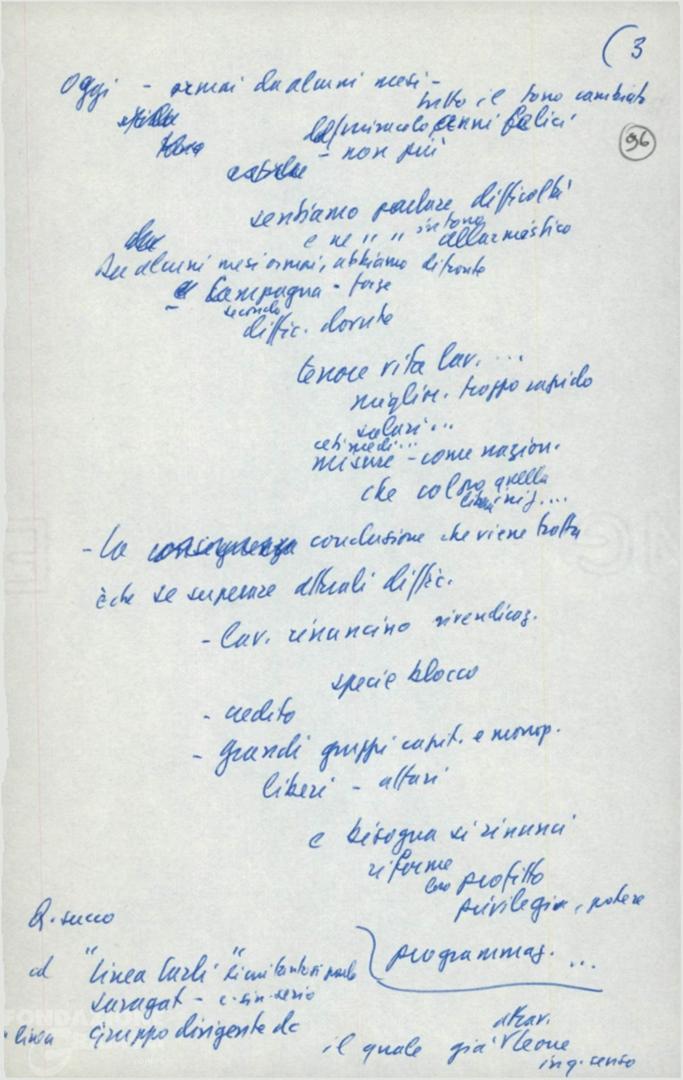 (3
Oggi - ormai da alcuni mesi -
tutto il tono cambiato
del miracolo anni felici
96
- non più
sentiamo parlare difficoltà
e ne " " in tono allarmistico
Da alcuni mesi ormai, abbiamo di fronte
Campagna - forse
secondo
diffic. dovute
tenore vita lav. ...
miglior. troppo rapido
salari...
ceti medi...
misure - come nazion.
che colpo quella
- La conseguenza conclusione che viene tratta
è che se superare attuali diffic.
- Lav. rinuncino rivendicaz.
specie blocco
- credito
- grandi gruppi capit. e monop.
liberi - affari
e bisogna si rinunci
riforme
loro profitto
privilegi, potere
Q. succo
programmaz. ...
"linea Carli" di cui tanto si parla
Saragat - c. sin. serio
linea gruppo dirigente dc
attrav.
il quale già Leone
in q. senso
FONDA